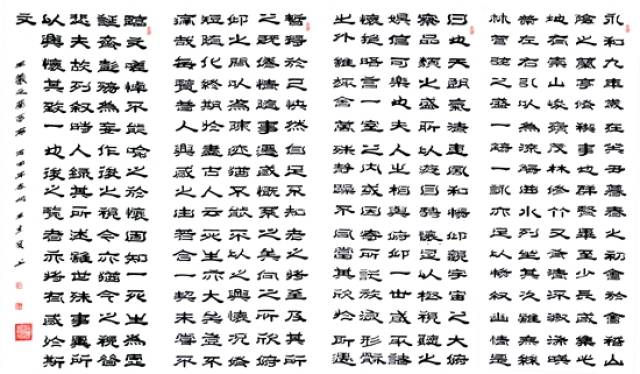 永和九年歲在癸丑暮春之初會於會稽山
陰之蘭亭修禊事也群賢畢至少長咸集此
地有崇山峻嶺茂林修竹又有清流激湍映
帶左右引以為流觴曲水列坐其次雖無絲
竹管弦之盛一觴一詠亦足以暢敘幽情是
日也天朗氣清惠風和暢仰觀宇宙之大俯
察品類之盛所以遊目騁懷足以極視聽之
娛信可樂也夫人之相與俯仰一世或取諸
懷抱晤言一室之內或因寄所託放浪形骸
之外雖趣舍萬殊靜躁不同當其欣於所遇
暫得於己快然自足不知老之將至及其所
之既倦情隨事遷感慨係之矣向之所欣俯
仰之間已為陳跡猶不能不以之興懷況修
短隨化終期於盡古人云死生亦大矣豈不
痛哉每覽昔人興感之由若合一契未嘗不
臨文嗟悼不能喻之於懷固知一死生為虛
誕齊彭殤為妄作後之視今亦猶今之視昔
悲夫故列敘時人錄其所述雖世殊事異所
以興懷其致一也後之覽者亦將有感於斯
文
王羲之蘭亭序